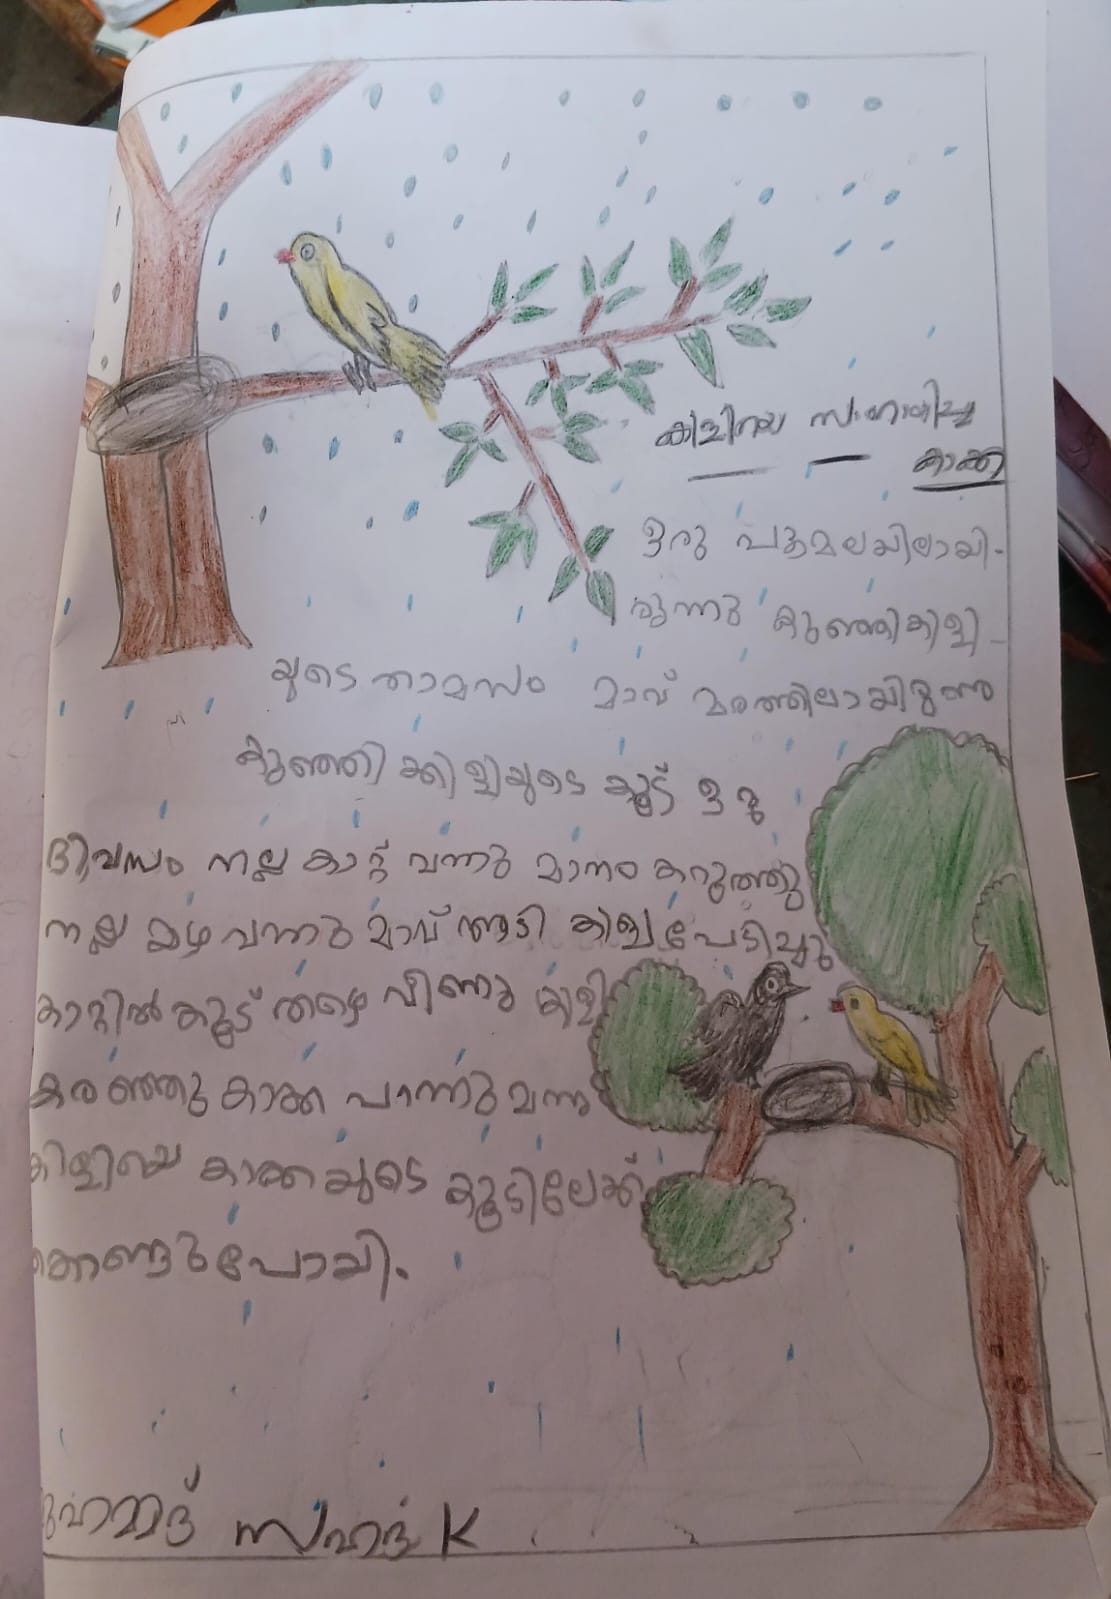 കിളിയെ സഹായിച്ച
കാക്ക
ഒരു പൂമലയിലായി-
രുന്നു കുഞ്ഞികിളി-
യുടെ താമസം മാവ് മരത്തിലായിരുന്നു
കുഞ്ഞി ക്കിളിയുടെ കൂട് ഒരു
ദിവസം നല്ല കാറ്റ് വന്നു മാനം കറുത്തു
നല്ല മഴ വന്നു മാവ് ആടി കിളി പേടിച്ചു
കാറ്റിൽ കൂട് തഴെ വീണു കിളി
കരഞ്ഞു കാക്ക പറന്നു വന്നു
കിളിയെ കാക്കയുടെ കൂടിലേക്ക്
കൊണ്ടുപോയി.
മുഹമ്മദ് സഹദ് K